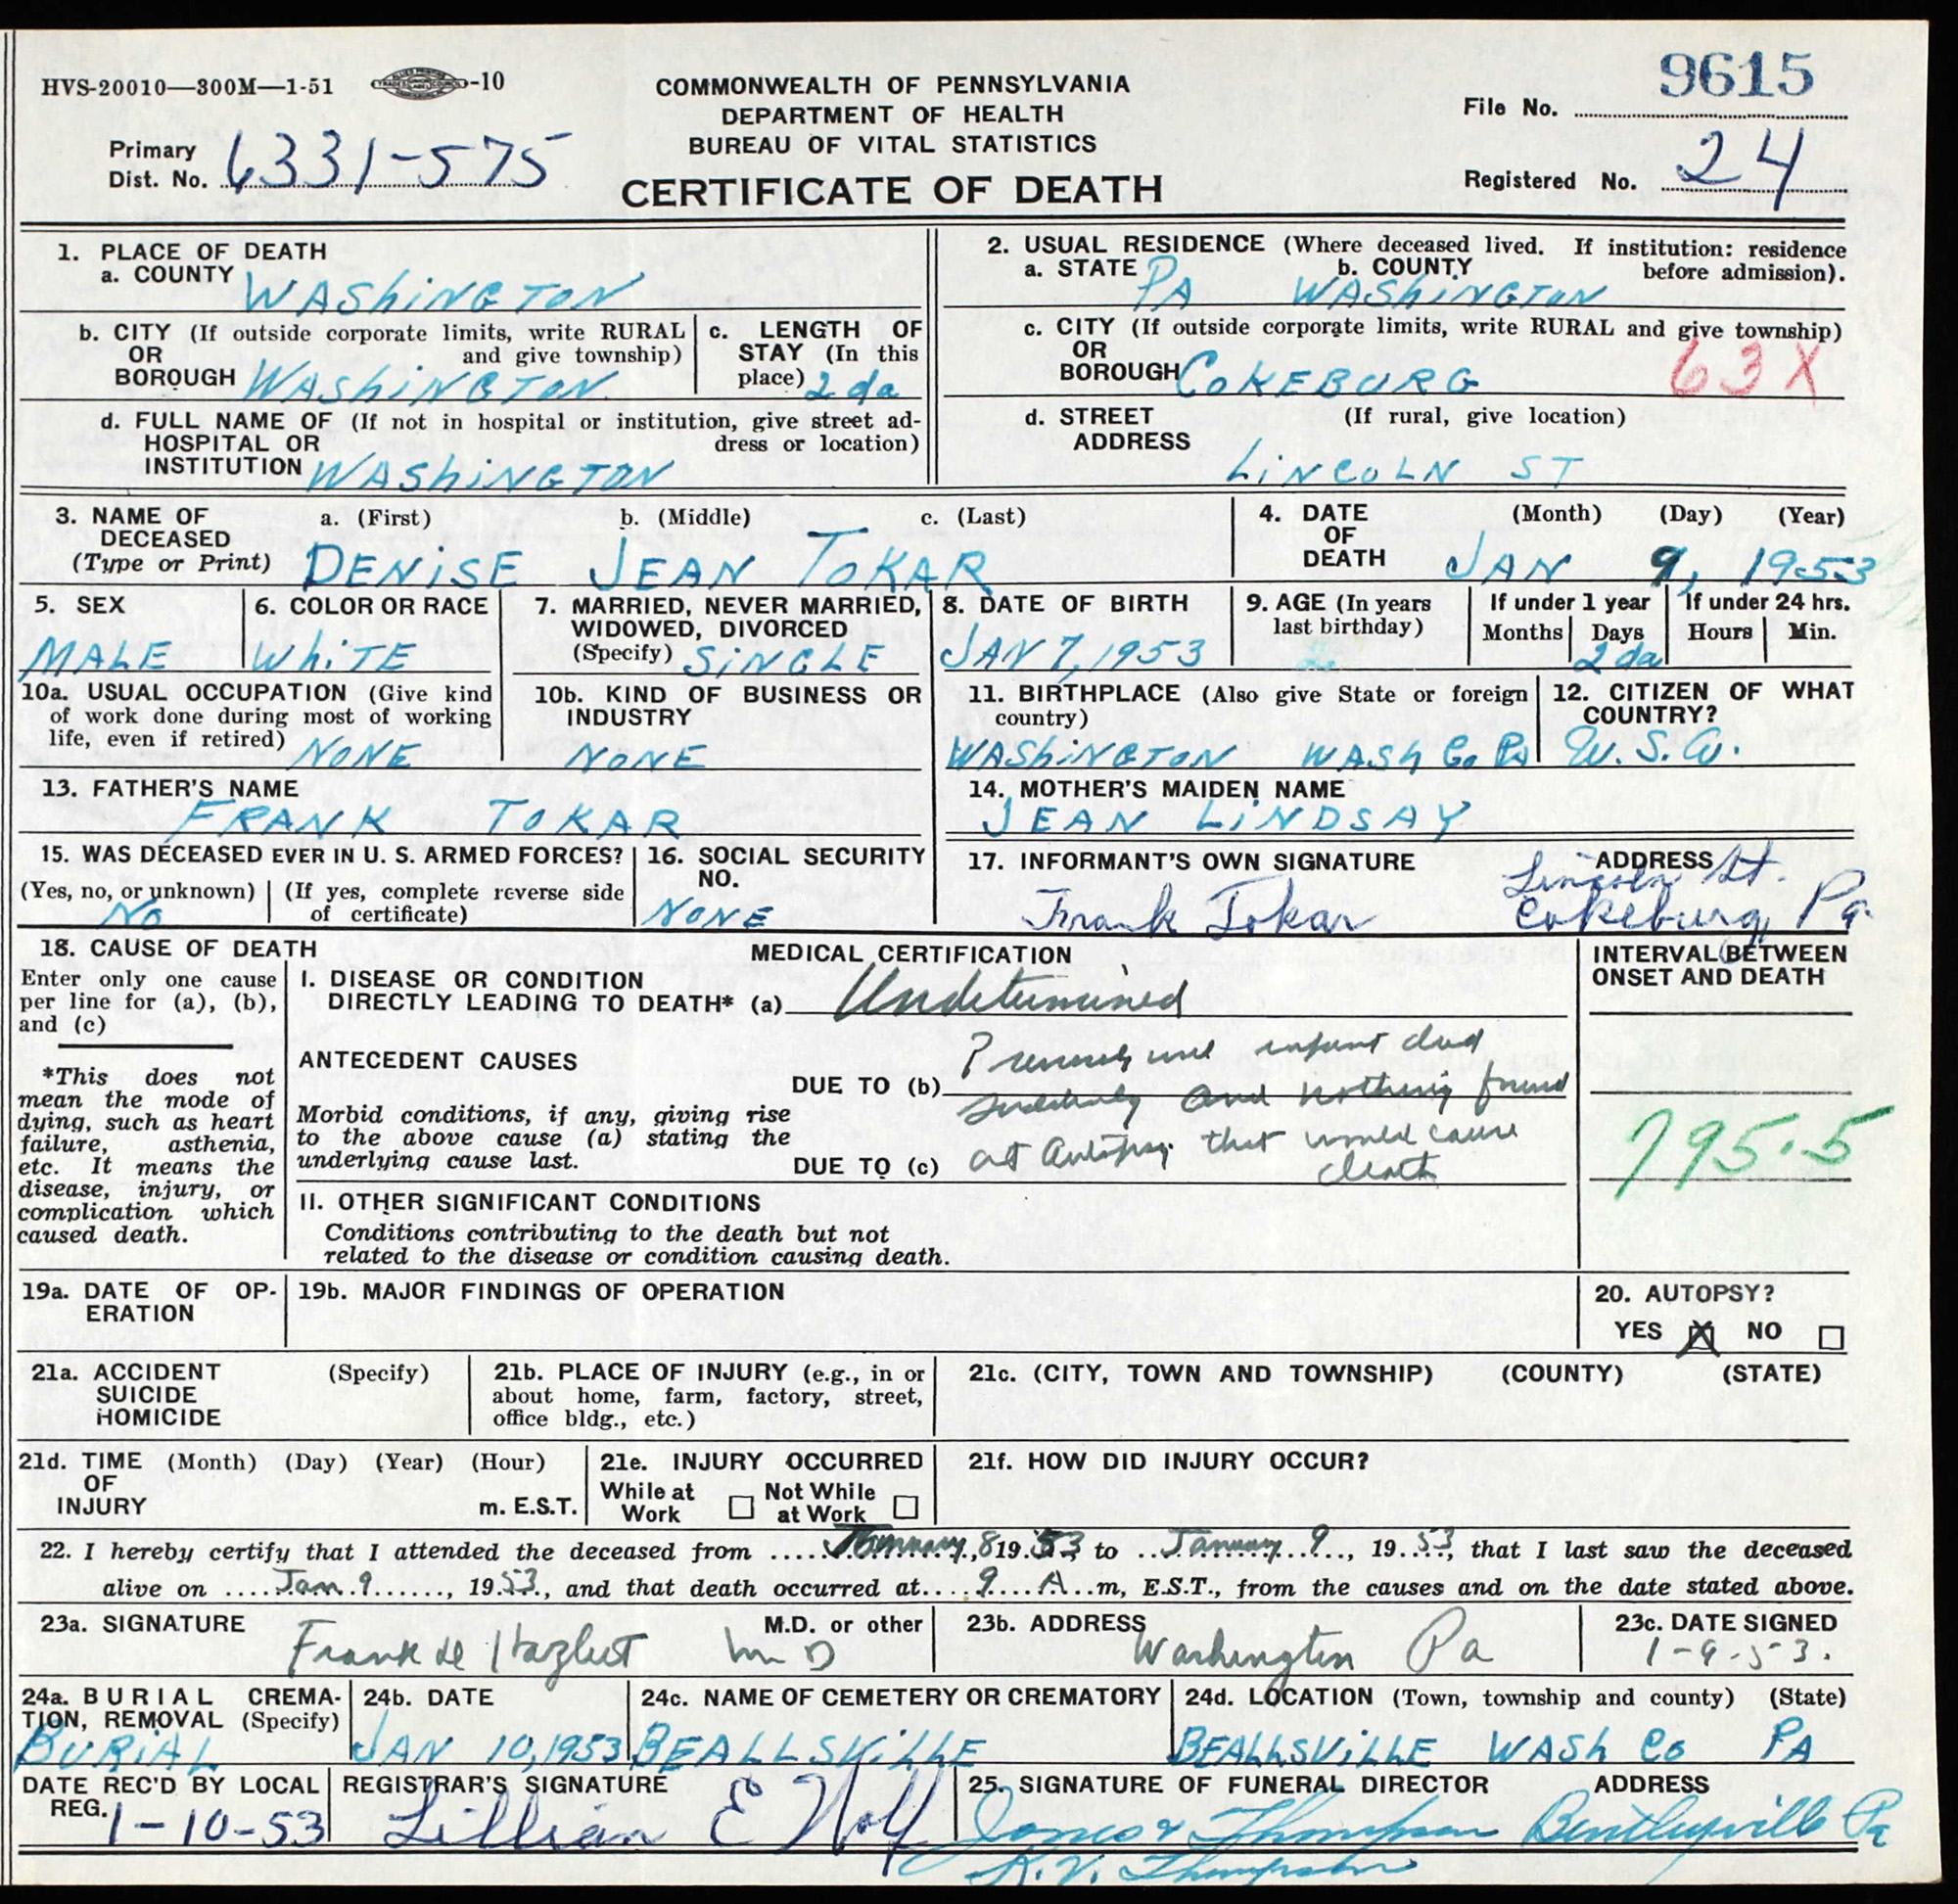 HVS-20010—300M—1-51 -10
COMMONWEALTH OF PENNSYLVANIA
DEPARTMENT OF HEALTH
BUREAU OF VITAL STATISTICS
CERTIFICATE OF DEATH
Primary
Dist. No. 6331-575
File No. 9615
Registered No. 24
1. PLACE OF DEATH
a. COUNTY WAShiNGTON
b. CITY (If outside corporate limits, write RURAL
OR and give township)
BOROUGH WAShiNGTON
c. LENGTH OF
STAY (In this
place) 2 da
d. FULL NAME OF (If not in hospital or institution, give street ad-
HOSPITAL OR dress or location)
INSTITUTION WAShiNGTON
2. USUAL RESIDENCE (Where deceased lived. If institution: residence
a. STATE PA b. COUNTY WAShiNGTON before admission).
c. CITY (If outside corporate limits, write RURAL and give township)
OR
BOROUGH COKEBURG 63X
d. STREET (If rural, give location)
ADDRESS
LiNCOLN ST
3. NAME OF a. (First) b. (Middle) c. (Last)
DECEASED
(Type or Print) DENiSE JEAN TOKAR
4. DATE (Month) (Day) (Year)
OF
DEATH JAN 9, 1953
5. SEX
MALE
6. COLOR OR RACE
WhiTE
7. MARRIED, NEVER MARRIED,
WIDOWED, DIVORCED
(Specify) SiNGLE
8. DATE OF BIRTH
JAN 7, 1953
9. AGE (In years
last birthday)
If under 1 year
Months Days
2 da
If under 24 hrs.
Hours Min.
10a. USUAL OCCUPATION (Give kind
of work done during most of working
life, even if retired) NONE
10b. KIND OF BUSINESS OR
INDUSTRY
NONE
11. BIRTHPLACE (Also give State or foreign
country)
WAShiNGTON WASh Co PA
12. CITIZEN OF WHAT
COUNTRY?
U.S.A.
13. FATHER'S NAME
FRANK TOKAR
14. MOTHER'S MAIDEN NAME
JEAN LiNDSAY
15. WAS DECEASED EVER IN U. S. ARMED FORCES?
(Yes, no, or unknown) (If yes, complete reverse side
No of certificate)
16. SOCIAL SECURITY
NO.
NONE
17. INFORMANT'S OWN SIGNATURE ADDRESS
Lincoln St.
Frank Tokar Cokeburg, Pa
18. CAUSE OF DEATH
Enter only one cause
per line for (a), (b),
and (c)
*This does not
mean the mode of
dying, such as heart
failure, asthenia,
etc. It means the
disease, injury, or
complication which
caused death.
MEDICAL CERTIFICATION
I. DISEASE OR CONDITION
DIRECTLY LEADING TO DEATH* (a) Undetermined
ANTECEDENT CAUSES
DUE TO (b) infant died
suddenly and nothing found
Morbid conditions, if any, giving rise
to the above cause (a) stating the
underlying cause last.
DUE TO (c) at Autopsy that would cause
death
II. OTHER SIGNIFICANT CONDITIONS
Conditions contributing to the death but not
related to the disease or condition causing death.
INTERVAL BETWEEN
ONSET AND DEATH
795.5
19a. DATE OF OP-
ERATION
19b. MAJOR FINDINGS OF OPERATION
20. AUTOPSY?
YES X NO
21a. ACCIDENT (Specify)
SUICIDE
HOMICIDE
21b. PLACE OF INJURY (e.g., in or
about home, farm, factory, street,
office bldg., etc.)
21c. (CITY, TOWN AND TOWNSHIP) (COUNTY) (STATE)
21d. TIME (Month) (Day) (Year) (Hour)
OF
INJURY m. E.S.T.
21e. INJURY OCCURRED
While at Not While
Work at Work
21f. HOW DID INJURY OCCUR?
22. I hereby certify that I attended the deceased from January, 8 1953 to January 9, 1953, that I last saw the deceased
alive on Jan. 9, 1953, and that death occurred at 9 A m, E.S.T., from the causes and on the date stated above.
23a. SIGNATURE M.D. or other
Frank de Hazlett MD
23b. ADDRESS
Washington Pa
23c. DATE SIGNED
1-9-53.
24a. BURIAL CREMA-
TION, REMOVAL (Specify)
BURiAL
24b. DATE
JAN 10, 1953
24c. NAME OF CEMETERY OR CREMATORY
BEALLSViLLE
24d. LOCATION (Town, township and county) (State)
BEALLSViLLE WASh Co PA
DATE REC'D BY LOCAL
REG. 1-10-53
REGISTRAR'S SIGNATURE
Lillian E Wolf
25. SIGNATURE OF FUNERAL DIRECTOR ADDRESS
Thompson Bentleyville Pa
K.V. Thompson